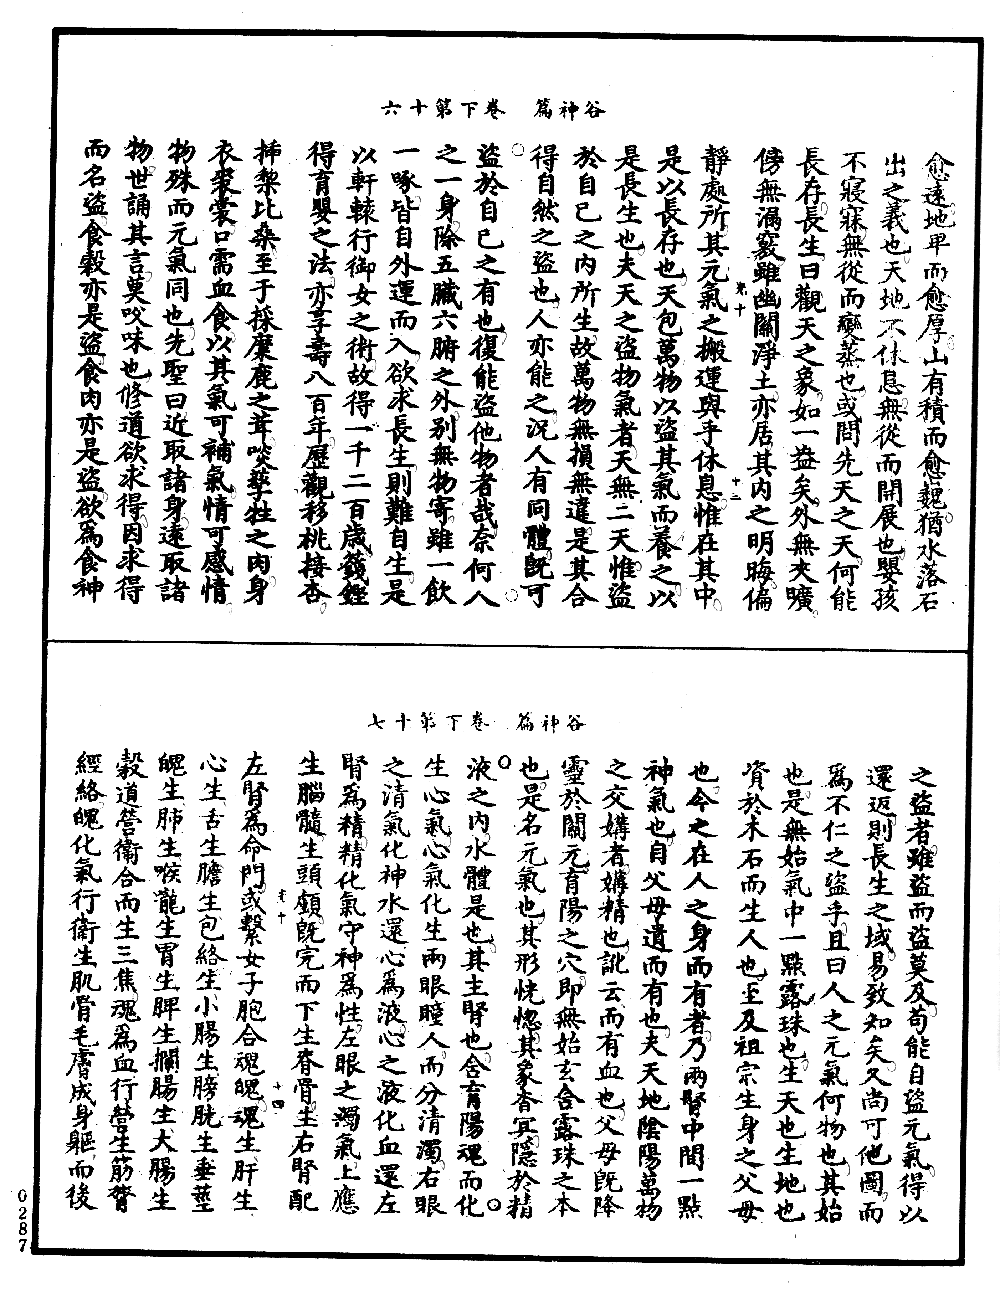 谷神篇　卷下第十六
愈遠地卑而愈厚山有積而愈巍猶水落石
出之義也天地不休息無從而開展也嬰孩
不寢寐無從而變蒸也或問先天之天何能
長存長生曰觀天之象如一益矣外無夾曠
傍無漏竅雖幽關淨土亦居其内之明晦偏
光十　十二
靜處所其元氣之搬運與乎休息惟在其中
是以長存也天包萬物以盜其氣而養之以
是長生也夫天之盜物氣者天無二天惟盜
於自己之内所生故萬物無損無違是其合
得自然之盜也人亦能之況人有同體既可
盜於自己之有也復能盜他物者哉奈何人
之一身除五臟六腑之外別無物寄雖一飲
一啄皆自外運而入欲求長生則難自生是
以軒轅行御女之術故得一千二百歲籛鏗
得育嬰之法亦享壽八百年歷觀移桃接杏
揷梨比桑至于採麋鹿之茸啖孳牲之肉身
衣裘裳口需血食以其氣可補氣情可感情
物殊而元氣同也先聖曰近取諸身遠取諸
物世誦其言莫咬味也修道欲求得因求得
而名盜食穀亦是盜食肉亦是盜欲爲食神
谷神篇　卷下第十七
之盜者雖盜而盜莫及苟能自盜元氣得以
還返則長生之域易致知矣又尚可他圖而
爲不仁之盜乎且曰人之元氣何物也其始
也是無始氣中一點露珠也生天也生地也
資於木石而生人也至及祖宗生身之父母
也今之在人之身而有者乃兩腎中間一點
神氣也自父母遺而有也夫天地陰陽萬物
之交媾者媾精也訛云而有血也父母既降
靈於關元育陽之穴即無始玄含露珠之本
也是名元氣也其形恍惚其象杳冥隱於精
液之内水體是也其主腎也含育陽魂而化
生心氣心氣化生兩眼瞳人而分清濁右眼
之清氣化神水還心爲液心之液化血還左
腎爲精精化氣守神爲性左眼之濁氣上應
生腦髓生頭顱既完而下生脊骨生右腎配
光十　十四
左腎爲命門或繫女子胞合魂魄魂生肝生
心生舌生膽生包絡生小腸生膀胱生垂莖
魄生肺生喉嚨生胃生脾生攔腸生大腸生
穀道營衛合而生三焦魂爲血行營生筋膂
經絡魄化氣行衛生肌骨毛膚成身軀而後
0287